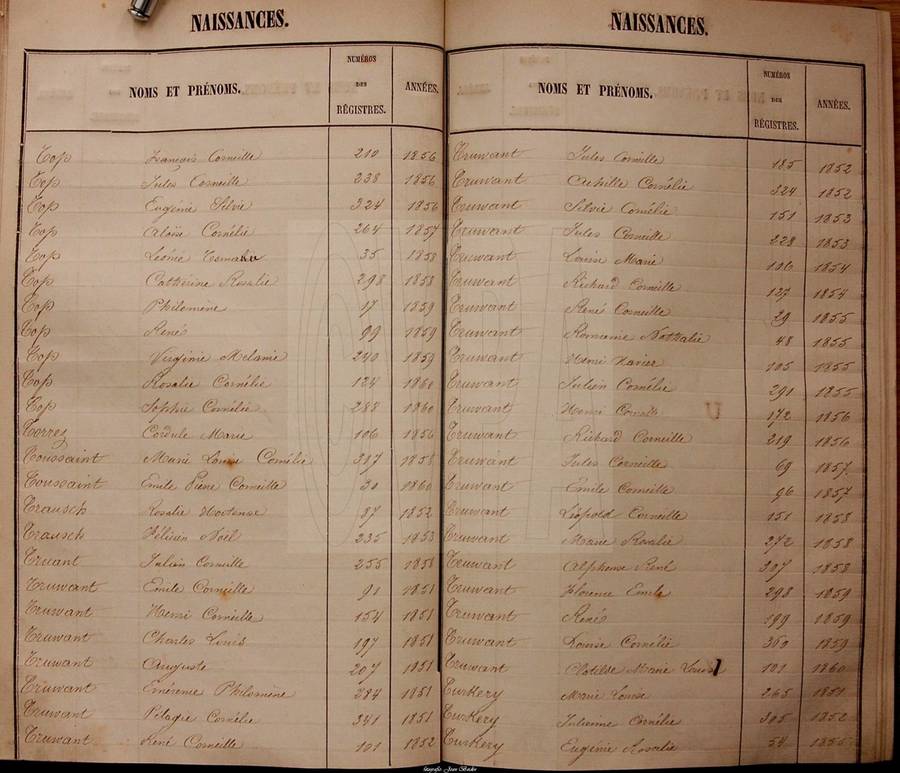 NAISSANCES.
NOMS ET PRÉNOMS. NUMÉROS DES RÉGISTRES. ANNÉES.
Top François Corneille 210 1856
Top Jules Corneille 238 1856
Top Eugénie Silvie 324 1856
Top Aloïse Cornélie 264 1857
Top Léonie 35 1858
Top Cathérine Rosalie 298 1858
Top Philomène 17 1859
Top René 99 1859
Top Virginie Melanie 240 1859
Top Rosalie Cornélie 124 1860
Top Sophie Cornélie 288 1860
Torrez Cordule Marie 106 1856
Toussaint Marie Louise Cornélie 317 1858
Toussaint Emile Pierre Corneille 30 1860
Trausch Rosalie Hortense 87 1852
Trausch Félicien Noël 235 1853
Truant Julien Corneille 255 1858
Truwant Emile Corneille 91 1851
Truwant Henri Corneille 154 1851
Truwant Charles Louis 197 1851
Truwant Auguste 207 1851
Truwant Emérence Philomène 284 1851
Truwant Pélagie Cornélie 341 1851
Truwant René Corneille 101 1852
NAISSANCES.
NOMS ET PRÉNOMS. NUMÉROS DES RÉGISTRES. ANNÉES.
Truwant Jules Corneille 185 1852
Truwant Achille Cornélie 324 1852
Truwant Silvie Cornélie 151 1853
Truwant Jules Corneille 228 1853
Truwant Louise Marie 106 1854
Truwant Richard Corneille 127 1854
Truwant René Corneille 29 1855
Truwant Romanie Nathalie 48 1855
Truwant Henri Xavier 105 1855
Truwant Julien Cornélie 291 1855
Truwant Henri 172 1856
Truwant Richard Corneille 219 1856
Truwant Jules Corneille 69 1857
Truwant Emile Corneille 96 1857
Truwant Léopold Corneille 151 1858
Truwant Marie Rosalie 272 1858
Truwant Alphonse René 307 1858
Truwant Florence Emile 298 1859
Truwant René 199 1859
Truwant Louise Cornélie 360 1859
Truwant Clotilde Marie Louise 101 1860
Turkery Marie Louise 265 1851
Turkery Julienne Cornélie 305 1852
Turkery Eugénie Rosalie 54 1855